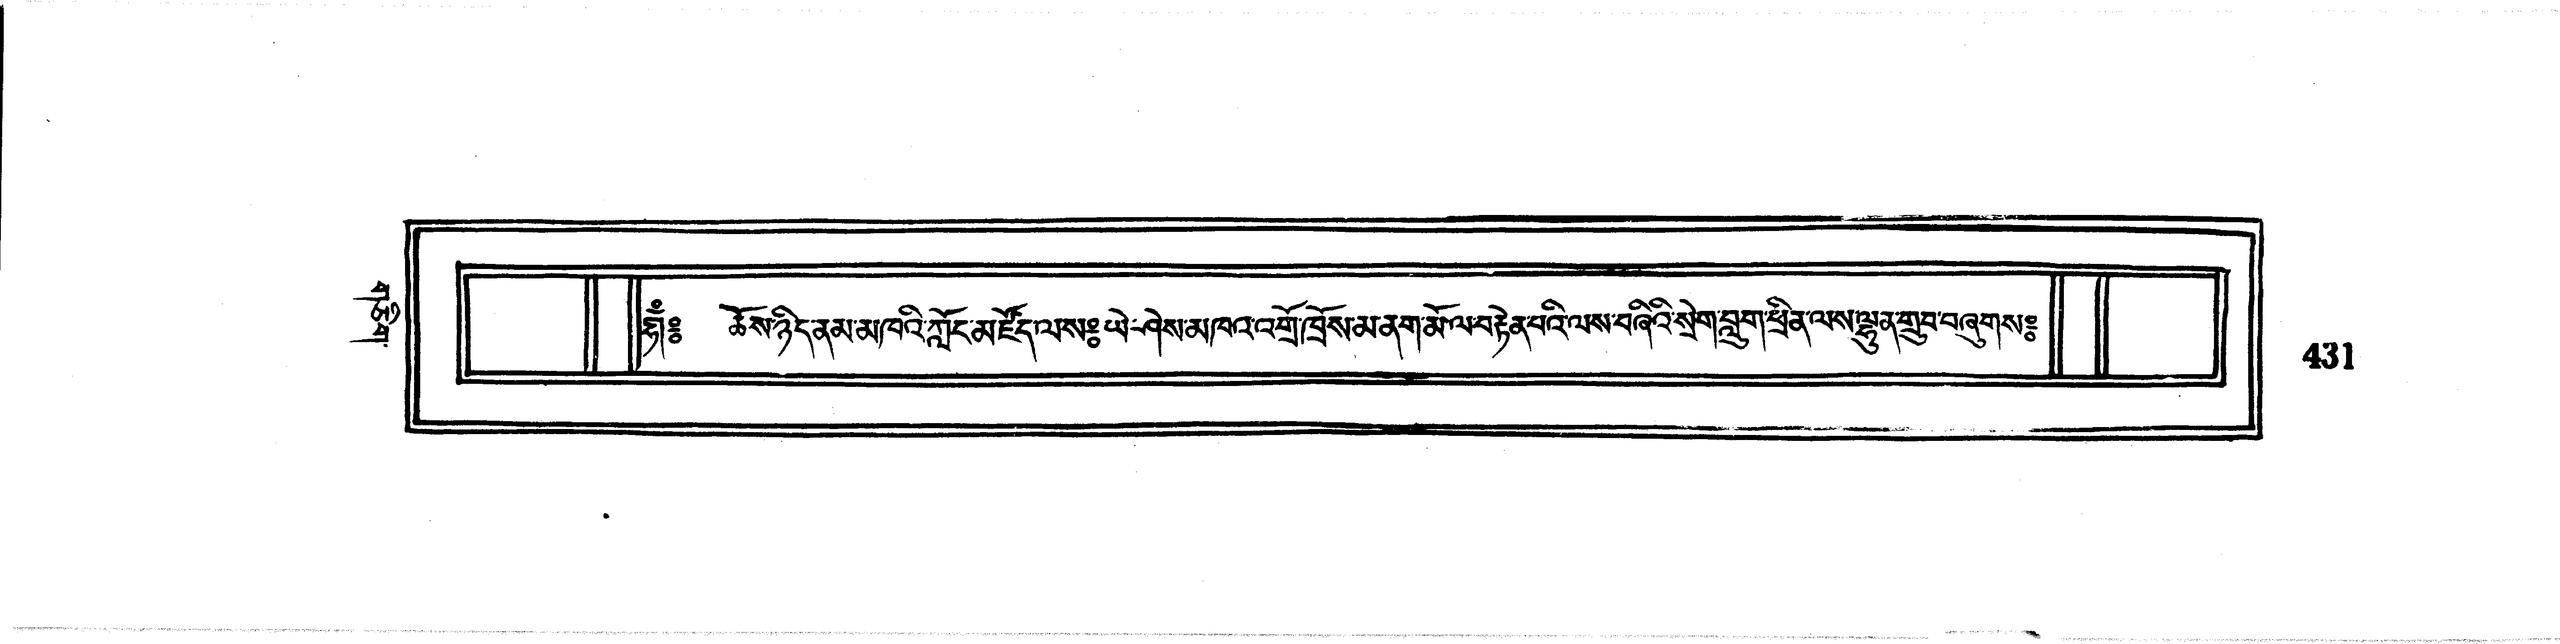 ཧཱུྃ༔ ཆོས་ཉིད་ནམ་མཁའི་ཀློང་མཛོད་ལས༔ ཡེ་ཤེས་མཁའ་འགྲོ་ཁྲོས་མ་ནག་མོ་ལ་བརྟེན་པའི་ལས་བཞིའི་སྲེག་བླུག་ཕྲིན་ལས་ལྷུན་གྲུབ་བཞུགས༔
431